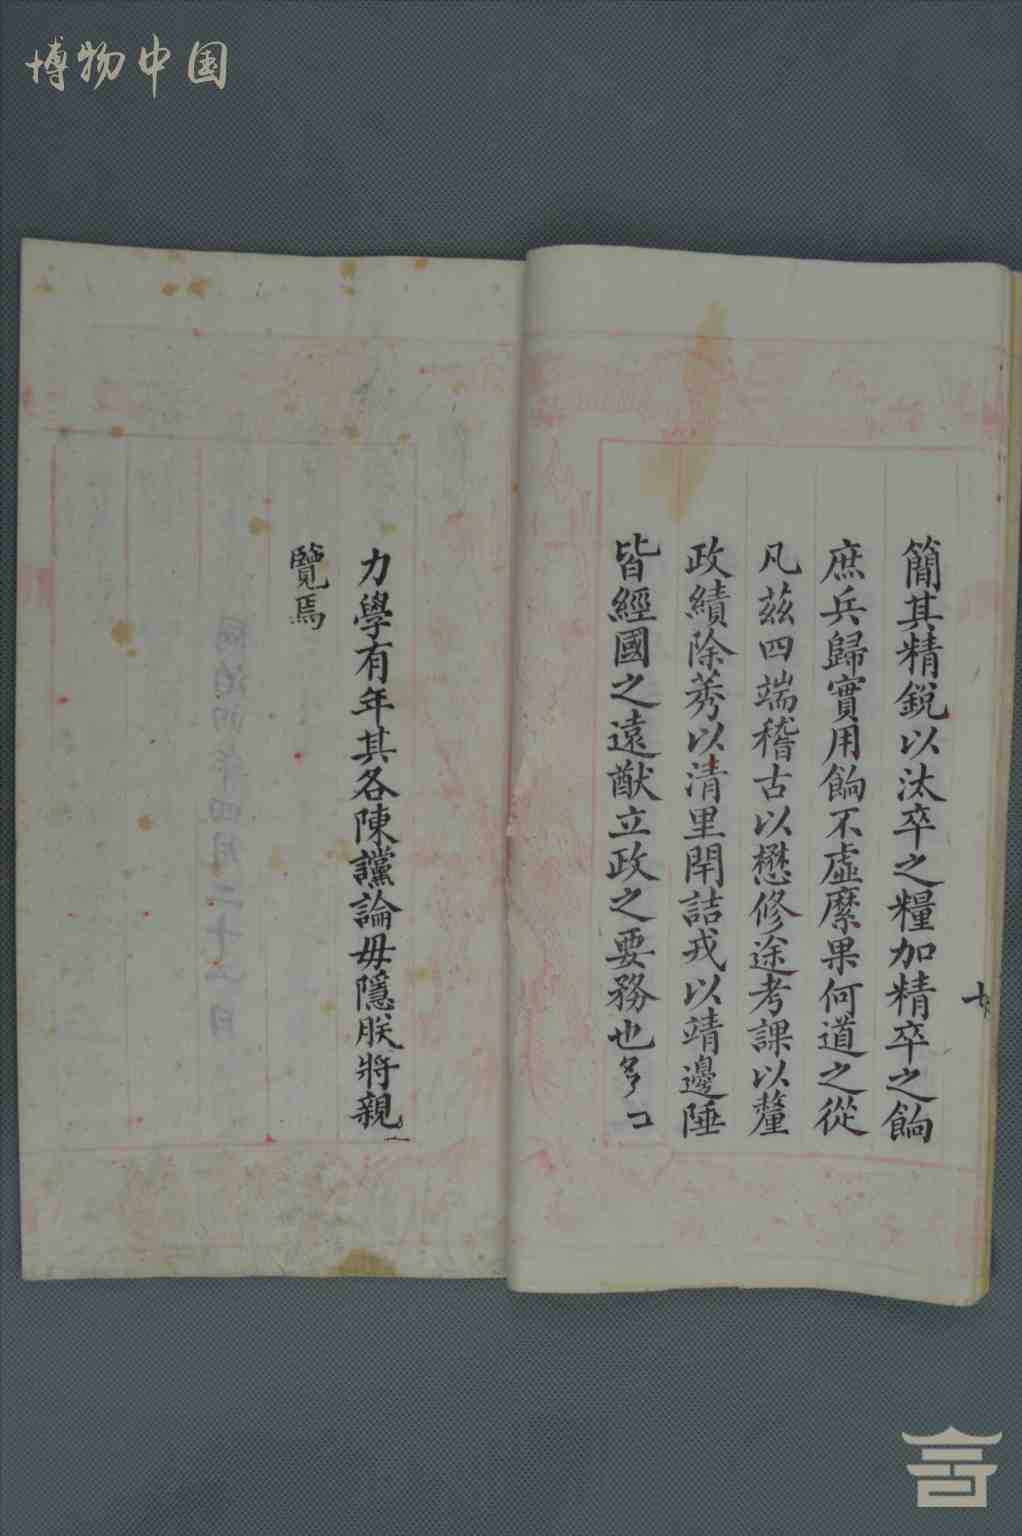 博物中国
簡其精鋭以汰卒之糧加精卒之餉
庶兵歸實用餉不虛糜果何道之從
凡茲四端稽古以懋修途考課以釐
政績除莠以清里閈詰戎以靖邊陲
皆經國之遠猷立政之要務也多
力學有年其各陳讜論毋隱朕將親
覽焉
同治四年四月二十一日